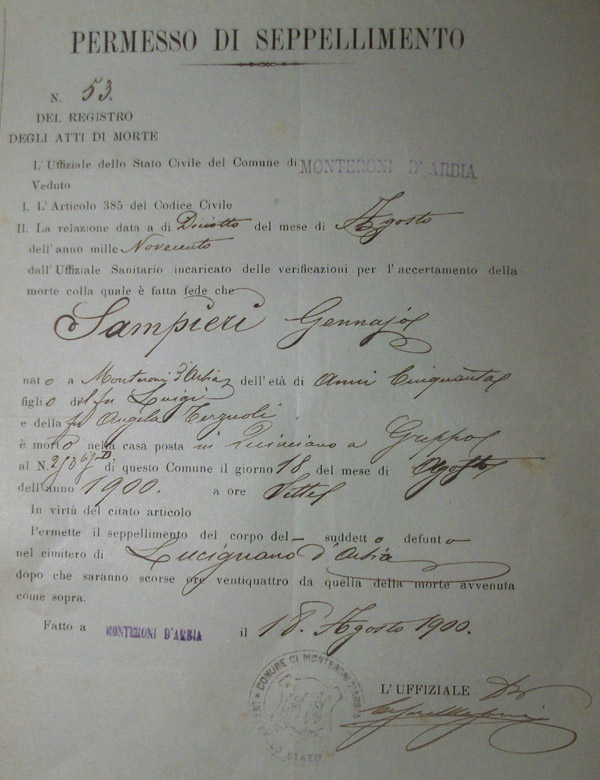 PERMESSO DI SEPPELLIMENTO
N. 53.
DEL REGISTRO
DEGLI ATTI DI MORTE
L'Uffiziale dello Stato Civile del Comune di MONTERONI D'ARBIA
Veduto
I. L'Articolo 385 del Codice Civile
II. La relazione data a di Diciotto del mese di Agosto
dell'anno mille Novecento
dall'Uffiziale Sanitario incaricato delle verificazioni per l'accertamento della
morte colla quale è fatta fede che
Sampieri Gennajo
nato a Monteroni d'Arbia dell'età di Anni Cinquanta
figlio del fu Luigi
e della fu Angela
è morto nella casa posta in a Greppo
al N. di questo Comune il giorno 18 del mese di Agosto
dell'anno 1900. a ore Sette
In virtù del citato articolo
Permette il seppellimento del corpo del suddetto defunto
nel cimitero di Lucignano d'Arbia
dopo che saranno scorse ore ventiquattro da quella della morte avvenuta
come sopra.
Fatto a MONTERONI D'ARBIA il 18. Agosto 1900.
COMUNE DI MONTERONI D'ARBIA
L'UFFIZIALE